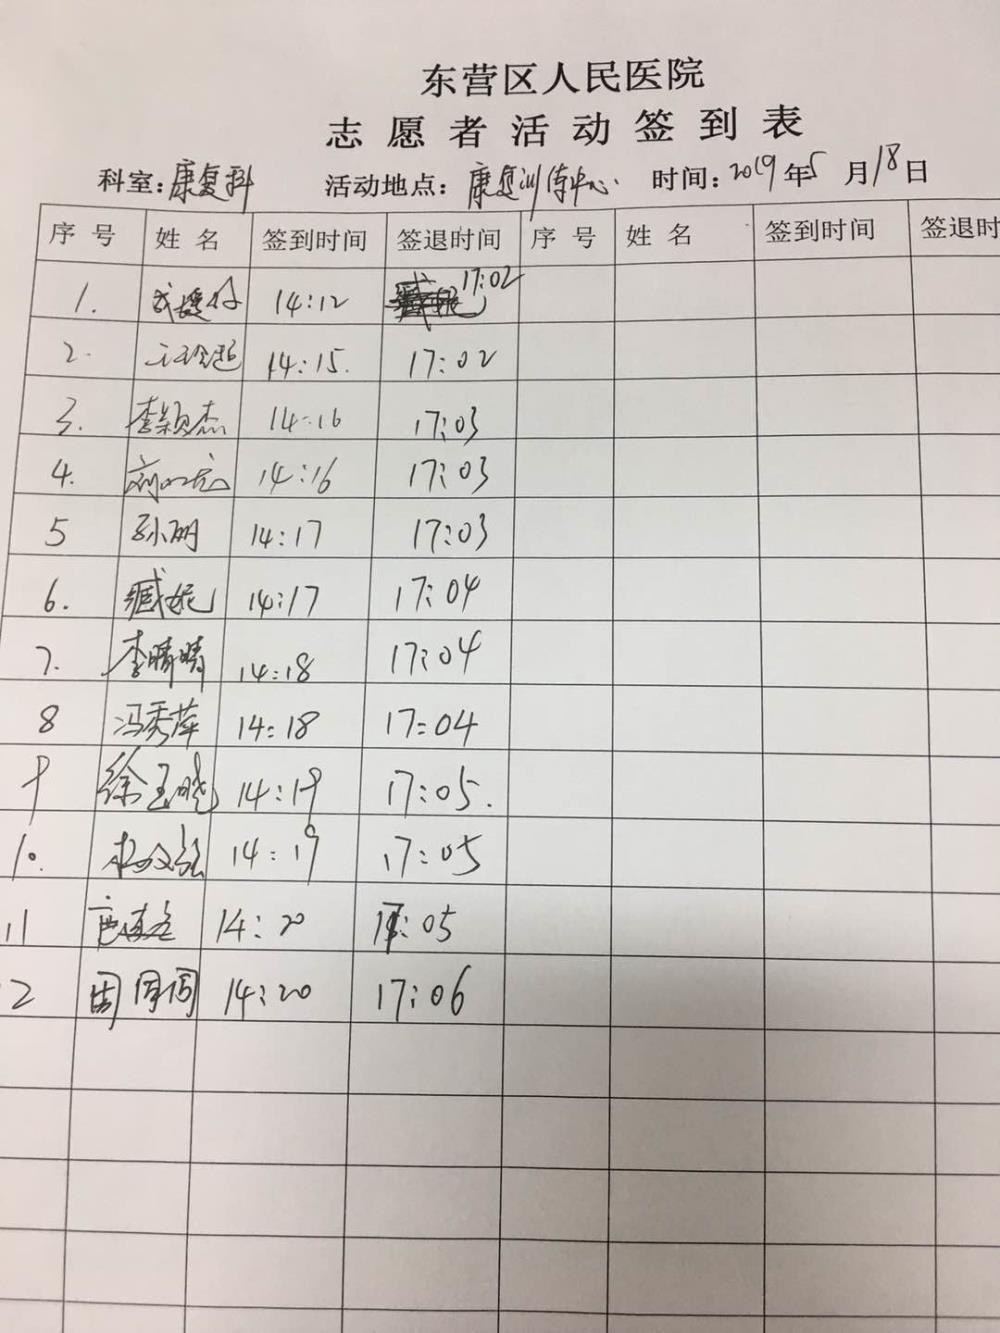 东营区人民医院
志愿者活动签到表
科室:康复科 活动地点:康复训练中心 时间:2019年5月18日
序号 姓名 签到时间 签退时间 序号 姓名 签到时间 签退时
1. 14:12 17:02
2. 14:15. 17:02
3. 李颖杰 14:16 17:03
4. 14:16 17:03
5 孙丽 14:17 17:03
6. 臧妮 14:17 17:04
7. 李晴晴 14:18 17:04
8 冯秀萍 14:18 17:04
9 徐玉晓 14:19 17:05.
10. 14:19 17:05
11 14:20 17:05
2 周倜倜 14:20 17:06